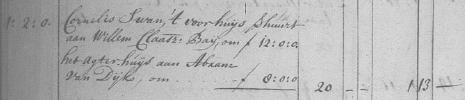 1:2:0. Cornelis Swan, 't voorhuys verhuurt
aan Willem Claasz: Bay, om f 12:0:0.
het agterhuijs aan Abram
Van Dijk, om - f 8:0:0 20 - 1 13 -